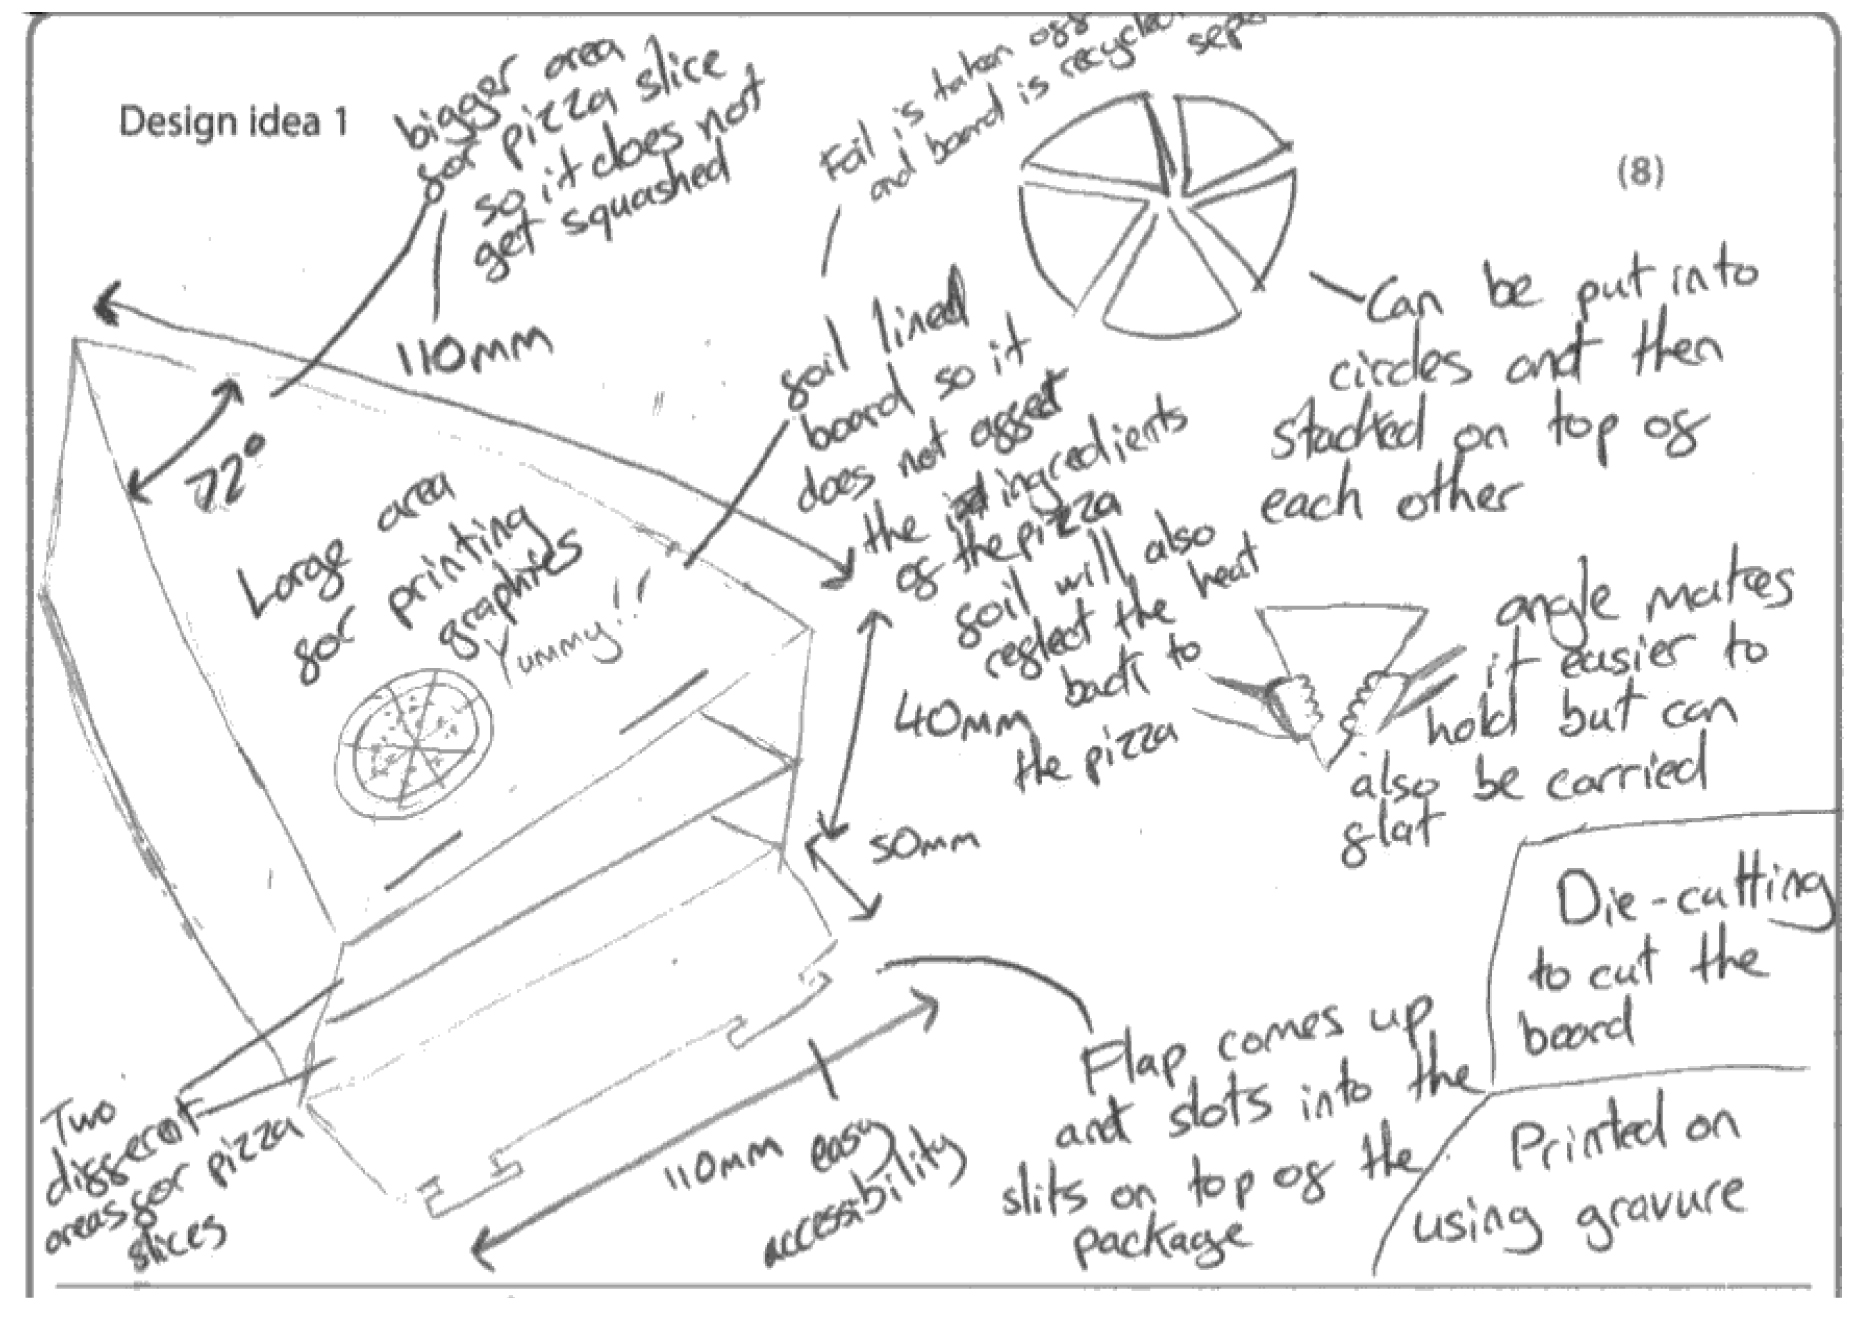 Design idea 1
(8)
bigger area
for pizza slice
so it does not
get squashed
110mm
72°
Foil is taken off
and board is recycled
Can be put into
circles and then
stacked on top of
each other
foil lined
board so it
does not affect
the ingredients
of the pizza
foil will also
reflect the heat
back to
the pizza
Large area
for printing
graphics
Yummy!!
angle makes
it easier to
hold but can
also be carried
flat
40mm
50mm
Die-cutting
to cut the
board
Flap comes up
and slots into the
slits on top of the
package
110mm easy
accessibility
Two
different
areas for pizza
slices
Printed on
using gravure